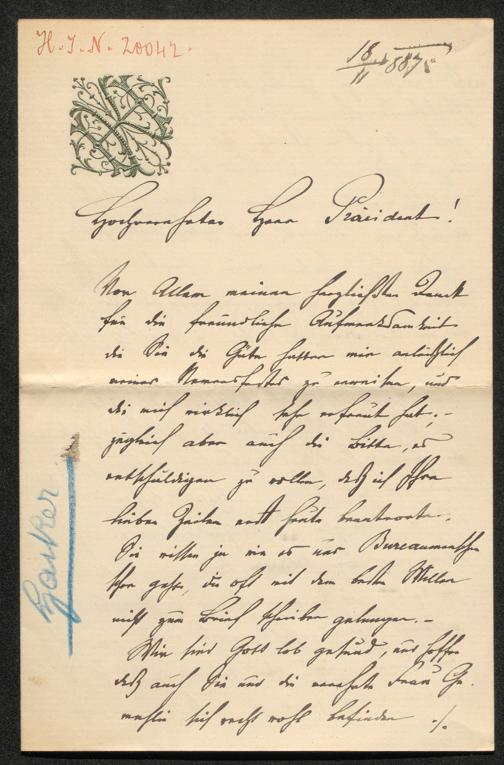 H. I. N. 20042.
18/11 887
Hochverehrter Herr Präsident!
Vor Allem meinen herzlichsten Dank
für die freundliche Aufmerksamkeit
die Sie die Güte hatten mir anläßlich
meines Namensfestes zu erweisen, und
die mich wirklich sehr erfreut hat; –
zugleich aber auch die Bitte, es
entschuldigen zu wollen, daß ich Ihre
lieben Zeilen erst heute beantworte.
Sie wissen ja wie es uns Bureaumenschen
schon geht, die oft mit dem besten Willen
nicht zum Brief schreiben gelangen. –
Wir sind Gott lob gesund, und hoffe
daß auch Sie und die verehrte Frau Ge-
mahlin sich recht wohl befinden ./.